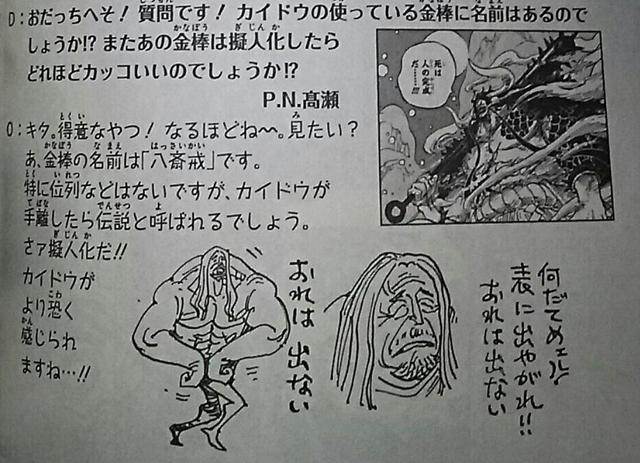 D：おだっちへそ！質問です！カイドウの使っている金棒に名前はあるので
しょうか!? またあの金棒は擬人化したら
どれほどカッコいいのでしょうか!?
P.N.髙瀬
O：キタ。得意なやつ！なるほどね〜。見たい？
あ、金棒の名前は「八斎戒」です。
特に位列などはないですが、カイドウが
手離したら伝説と呼ばれるでしょう。
さァ擬人化だ!!
カイドウが
より恐く
感じられ
ますね…!!
死は
人の完成
だ……!!!
おれは出ない
何だてめェル♪
表に出やがれ!!
おれは出ない